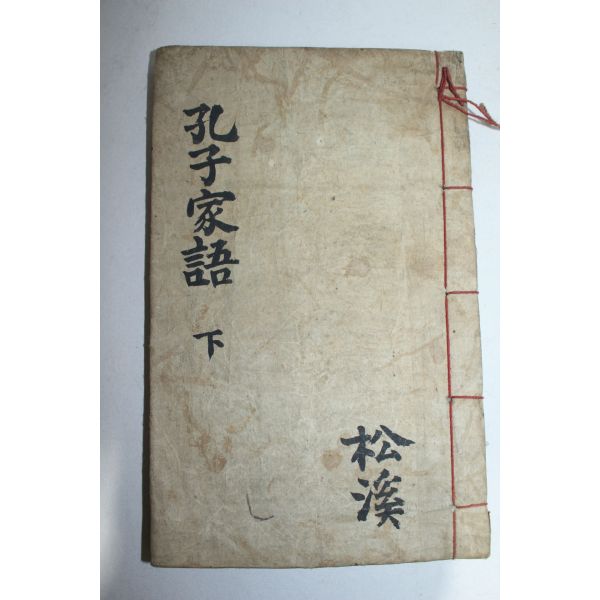 孔子家語
下
松溪